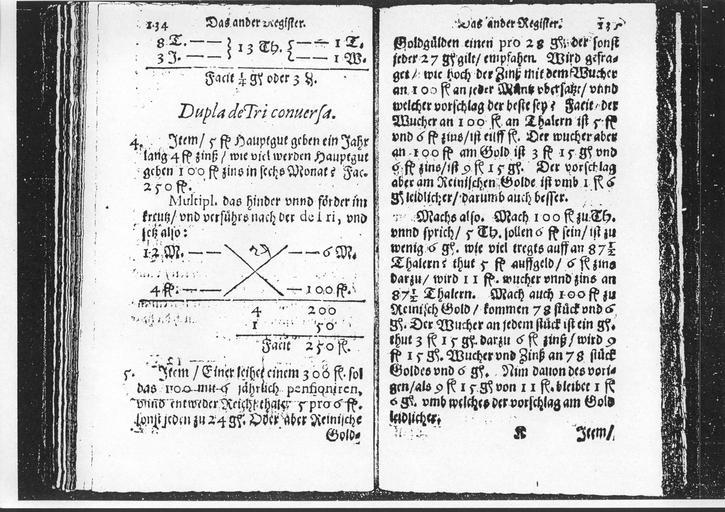 134 Das ander Register.
8 T. — } 13 Th. { — 1 T.
3 J. — — 1 W.
Facit ¼ gl oder 3 ₰.
Dupla de Tri conuersa.
4. Item / 5 fl Hauptgut geben ein Jahr
lang 4 fl zinß / wie viel werden Hauptgut
geben 100 fl zins in sechs Monat? Fac.
250 fl.
Multipl. das hinder vnnd förder im
kreutz / vnd verführs nach der de Tri, vnd
setz also:
12 M. — — 6 M.
4 fl. — — 100 fl.
4 200
1 50
Facit 250 fl.
5. Item / Einer leihet einem 300 fl. sol
das 100 mit 6 jährlich pensioniren,
vnnd entweder Reichsthaler 5 pro 6 fl.
sonst jeden zu 24 gl. Oder aber Reinische
Gold-
Das ander Register. 135
Goldgülden einen pro 28 gl. der sonst
jeder 27 gl gilt / empfahen. Wird gefra-
get / wie hoch der Zinß mit dem Wucher
an 100 fl an jeder Müntz vbersatze / vnnd
welcher vorschlag der beste sey? Facit / der
Wucher an 100 fl. an Thalern ist 5 fl
vnd 6 fl zins / ist eilff fl. Der wucher aber
an 100 fl am Gold ist 3 fl 15 gl vnd
6 fl zins / ist 9 fl 15 gl. Der vorschlag
aber am Reinischen Golde ist vmb 1 fl 6
gl leidlicher / darumb auch besser.
Machs also. Mach 100 fl zu Th.
vnnd sprich / 5 Th. sollen 6 fl sein / ist zu
wenig 6 gl. wie viel tregts auff an 87½
Thalern? thut 5 fl auffgeld / 6 fl zins
darzu / wird 11 fl. wucher vnnd zins an
87½ Thalern. Mach auch 100 fl zu
Reinisch Gold / kommen 78 stück vnd 6
gl. Der Wucher an jedem stück ist ein gl.
thut 3 fl 15 gl. darzu 6 fl zinß / wird 9
fl 15 gl. Wucher vnd Zinß an 78 stück
Goldes vnd 6 gl. Nim dauon des vori-
gen / als 9 fl 15 gl von 11 fl. bleibet 1 fl
6 gl. vmb welches der vorschlag am Gold
leidlicher.
K Item /